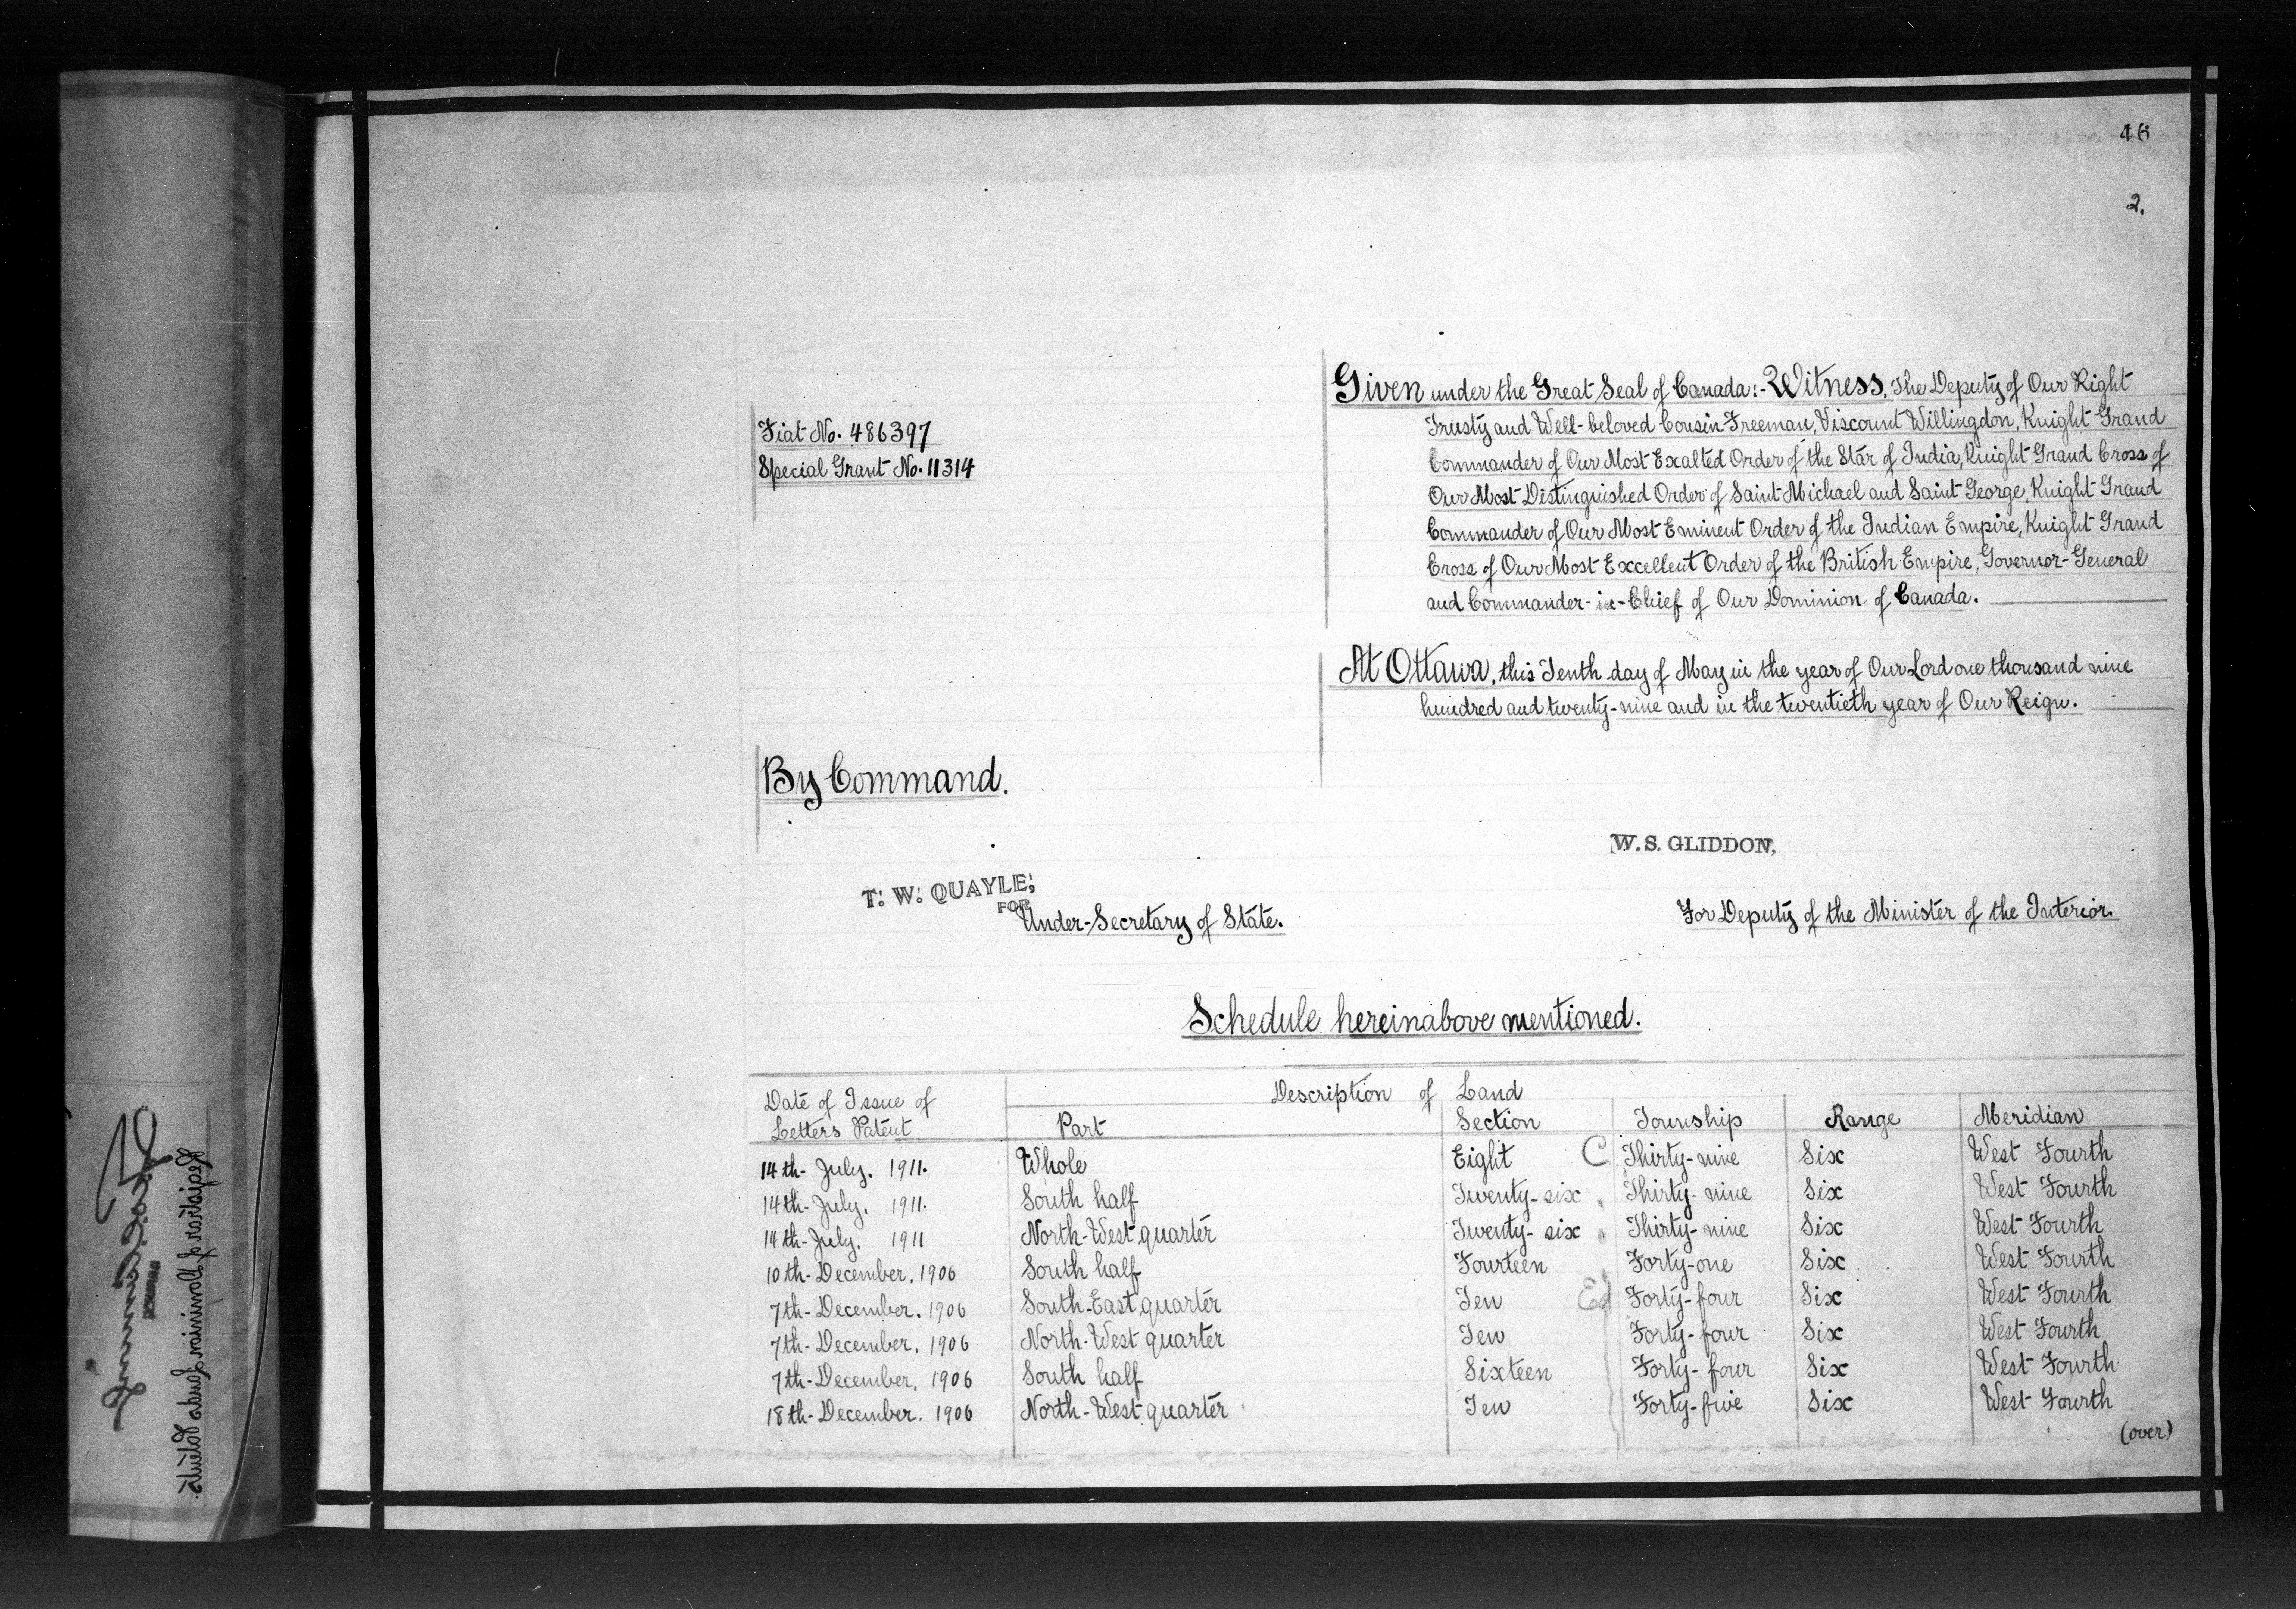 2.
Given under the Great Seal of Canada:- Witness, The Deputy of Our Right
Trusty and Well-beloved Cousin Freeman, Viscount Willingdon, Knight Grand
Commander of Our Most Exalted Order of the Star of India, Knight Grand Cross of
Our Most Distinguished Order of Saint Michael and Saint George, Knight Grand
Commander of Our Most Eminent Order of the Indian Empire, Knight Grand
Cross of Our Most Excellent Order of the British Empire, Governor-General
and Commander-in-Chief of Our Dominion of Canada.
Fiat No. 486397
Special Grant No. 11314
At Ottawa, this Tenth day of May in the year of Our Lord one thousand nine
hundred and twenty-nine and in the twentieth year of Our Reign.
By Command.
W. S. GLIDDON,
For Deputy of the Minister of the Interior.
T. W. QUAYLE,
FOR
Under-Secretary of State.
Schedule hereinabove mentioned.
Date of Issue of Letters Patent Description of Land
Part Section Township Range Meridian
14th- July. 1911. Whole Eight C Thirty-nine Six West Fourth
14th- July. 1911. South half Twenty-six Thirty-nine Six West Fourth
14th- July. 1911 North-West quarter Twenty-six Thirty-nine Six West Fourth
10th- December. 1906 South half Fourteen Forty-one Six West Fourth
7th- December. 1906 South-East quarter Ten Ed Forty-four Six West Fourth
7th- December. 1906 North-West quarter Ten Forty-four Six West Fourth
7th- December. 1906 South half Sixteen Forty-four Six West Fourth
18th- December. 1906 North-West quarter Ten Forty-five Six West Fourth
(over)
Registrar of Dominion Lands Patents.